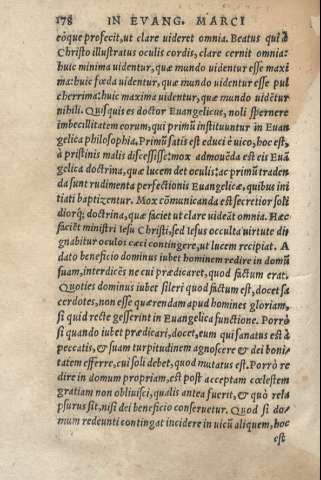 178 IN EVANG. MARCI
eòque profecit, ut clare uideret omnia. Beatus qui à
Christo illustratus oculis cordis, clare cernit omnia:
huic minima uidentur, quæ mundo uidentur esse maxi
ma: huic fœda uidentur, quæ mundo uidentur esse pul
cherrima: huic maxima uidentur, quæ mundo uidētur
nihili. Quisquis es doctor Euangelicus, noli spernere
imbecillitatem eorum, qui primũ instituuntur in Euan
gelica philosophia. Primũ satis est educi è uico, hoc est,
à pristinis malis discessisse: mox admouēda est eis Euā
gelica doctrina, quæ lucem det oculis: ac primũ traden
da sunt rudimenta perfectionis Euangelicæ, quibus ini
tiati baptizentur. Mox cōmunicanda est secretior soli
diorq; doctrina, quæ faciet ut clare uideāt omnia. Hæc
faciēt ministri Iesu Christi, sed Iesus occulta uirtute di
gnabitur oculos cæci contingere, ut lucem recipiat. A
dato beneficio dominus iubet hominem redire in domũ
suam, interdicēs ne cui prædicaret, quod factum erat.
Quoties dominus iubet sileri quod factum est, docet sa
cerdotes, non esse quærendam apud homines gloriam,
si quid recte gesserint in Euangelica functione. Porrò
si quando iubet prædicari, docet, eum qui sanatus est à
peccatis, & suam turpitudinem agnoscere & dei boni-
tatem efferre, cui soli debet, quod mutatus est. Porrò re
dire in domum propriam, est post acceptam cœlestem
gratiam non obliuisci, qualis antea fuerit, & quò rela
psurus sit, nisi dei beneficio conseruetur. Quod si do-
mum redeunti contingat incidere in uicũ aliquem, hoc
est